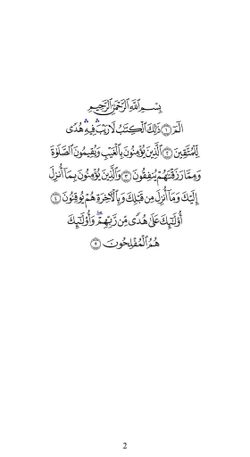 بِسْمِ اللَّهِ الرَّحْمَٰنِ الرَّحِيمِ
الٓمٓ ١ ذَٰلِكَ الْكِتَٰبُ لَا رَيْبَ ۛ فِيهِ ۛ هُدًى
لِلْمُتَّقِينَ ٢ الَّذِينَ يُؤْمِنُونَ بِالْغَيْبِ وَيُقِيمُونَ الصَّلَوٰةَ
وَمِمَّا رَزَقْنَٰهُمْ يُنفِقُونَ ٣ وَالَّذِينَ يُؤْمِنُونَ بِمَا أُنزِلَ
إِلَيْكَ وَمَا أُنزِلَ مِن قَبْلِكَ وَبِالْآخِرَةِ هُمْ يُوقِنُونَ ٤
أُولَٰئِكَ عَلَىٰ هُدًى مِن رَّبِّهِمْ ۖ وَأُولَٰئِكَ
هُمُ الْمُفْلِحُونَ ٥
2